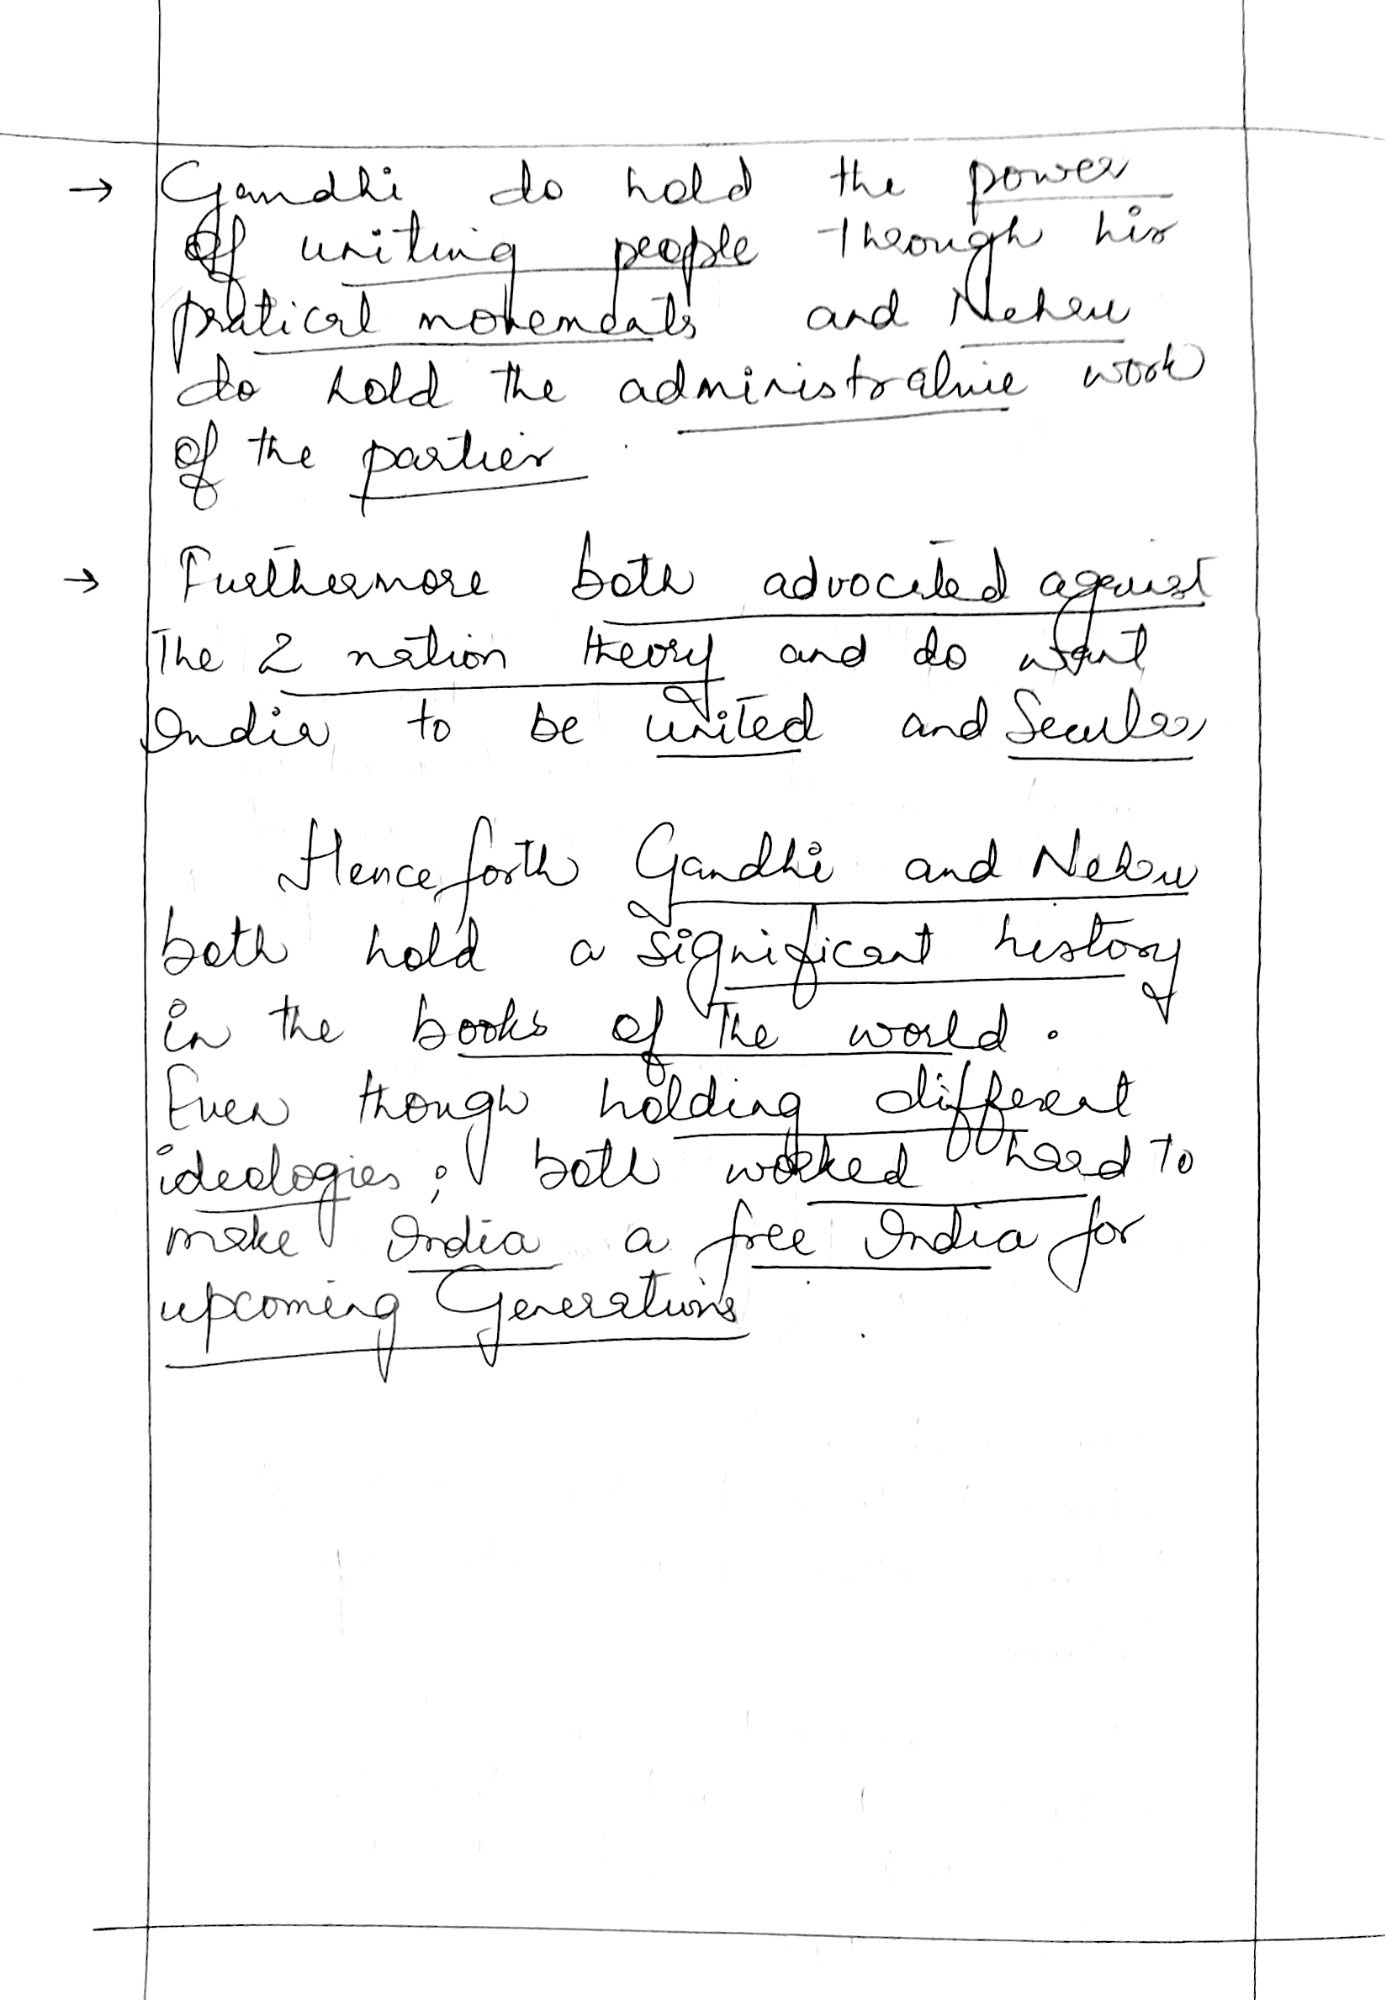 → Gandhi do hold the power
of uniting people through his
pratical movements and Nehru
do hold the administrative work
of the parties
→ Furthermore both advocated against
The 2 nation theory and do want
India to be united and Secular
Henceforth Gandhi and Nehru
both hold a significant history
in the books of The world.
Even though holding different
ideologies; both worked hard to
make India a free India for
upcoming Generations